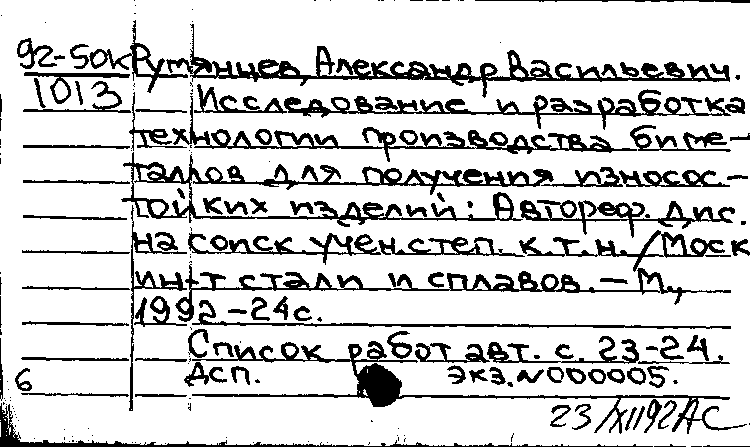 92-50к Румянцев, Александр Васильевич.
1013 Исследование и разработка
технологии производства биме-
таллов для получения износос-
тойких изделий: Автореф. дис.
на соиск. учен. степ. к.т.н. / Моск
ин-т стали и сплавов. – М.,
1992. – 24 с.
Список работ авт. с. 23-24.
6 Дсп. Экз. N000005.
23/XII92АС